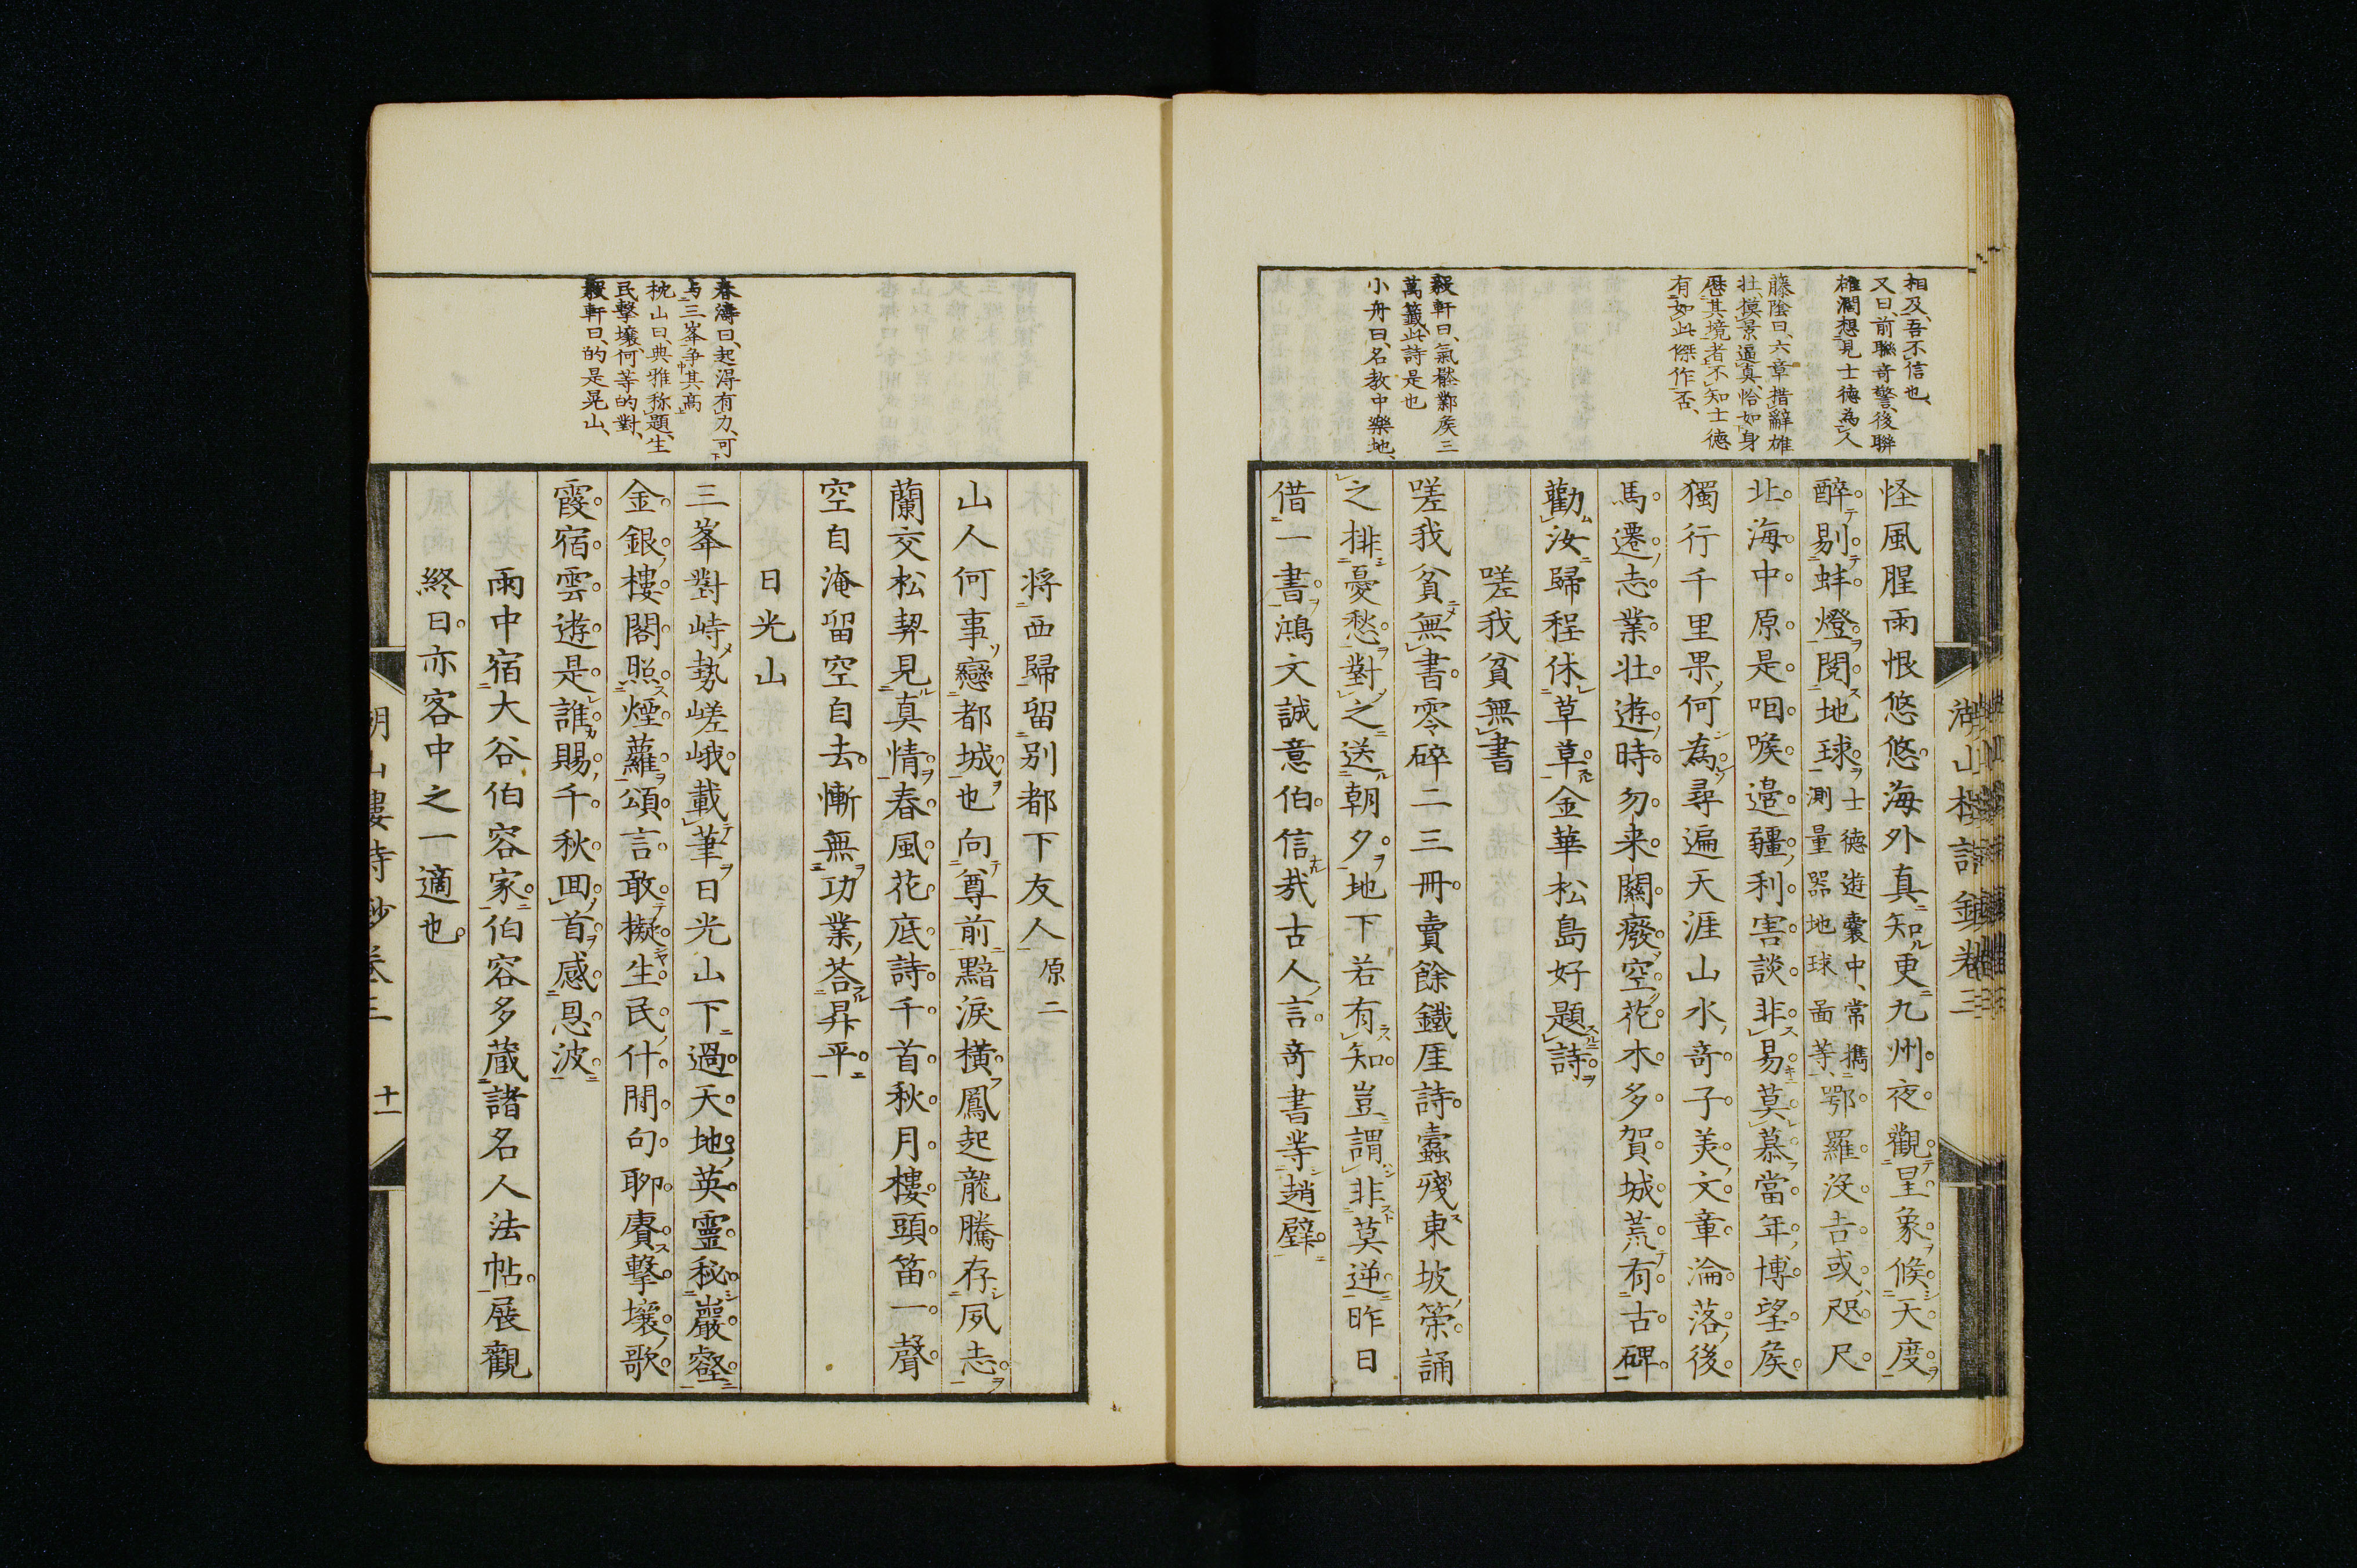 相及、吾不信也、
又曰、前聯奇警、後聯
雄濶想見士德為人
藤陰曰、六章措辭雄
壮、摸景逼真、恰如身
歴其境者、不知士徳
有如此傑作否、
毅軒曰、氣𣣔鄴矦三
萬籤、此詩是也
小舟曰、名教中樂地、
怪風腥雨恨悠悠海外真知更九州夜觀星象候天度
醉剔蚌燈閱地球士德遊嚢中、常携測量器地球啚等、鄂羅没吉或咫尺
北海中原是咽喉邉疆利害談非易莫慕當年博望矦
獨行千里果何為尋遍天涯山水奇子美文章淪落後
馬遷志業壮遊時勿来關癈空花木多賀城荒有古碑
勸汝歸程休草草金華松島好題詩
嗟我貧無書
嗟我貧無書零碎二三冊賣餘鐵厓詩蠹殘東坡策誦
之排憂愁對之送朝夕地下若有知豈謂非莫逆昨日
借一書鴻文誠意伯信哉古人言奇書等趙璧
湖山樓詩鈔卷三
将西歸留別都下友人 原二
山人何事戀都城也向尊前黯淚横鳳起龍騰存夙志
蘭交松契見真情春風花底詩千首秋月樓頭笛一聲
空自淹留空自去慚無功業荅昇平
日光山
三峯對峙勢嵯峨載筆日光山下過天地英靈秘巖壑
金銀樓閣照煙蘿頌言敢擬生民什閒句聊賡擊壤歌
霞宿雲遊是誰賜千秋回首感恩波
雨中宿大谷伯容家伯容多蔵諸名人法帖展觀
終日亦客中之一適也
春濤曰、起得有力、可
与三峯争其高
枕山曰、典雅称題、生
民擊壤、何等的對、
毅軒曰、的是晃山、
湖山樓詩鈔卷三 十一